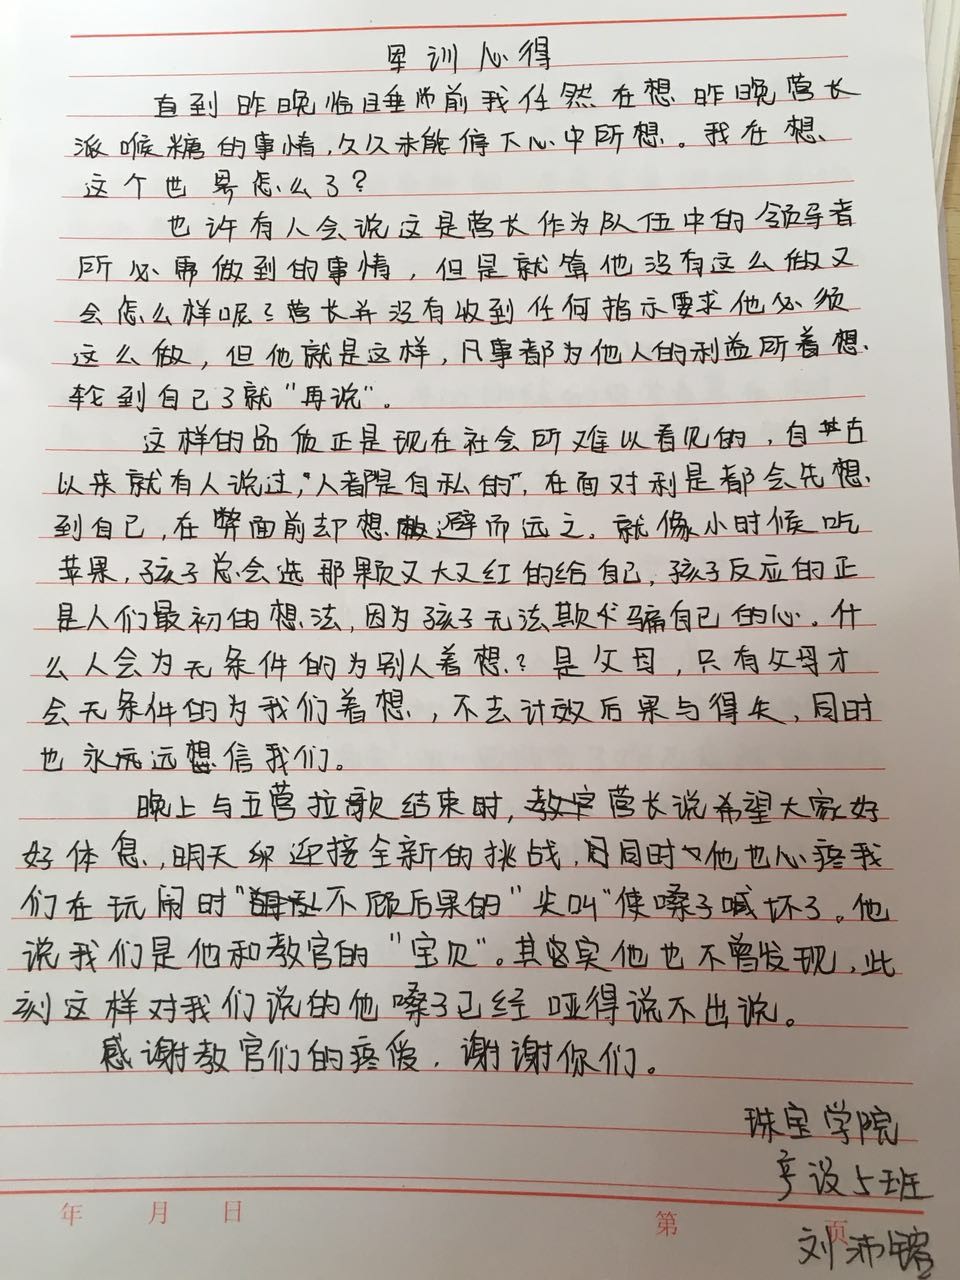 军训心得
直到昨晚临睡前我任然在想昨晚营长
派喉糖的事情,久久未能停下心中所想。我在想
这个世界怎么了?
也许有人会说这是营长作为队伍中的领导者
所必需做到的事情，但是就算他没有这么做又
会怎么样呢?营长并没有收到任何指示要求他必须
这么做，但他就是这样，凡事都为他人的利益所着想,
轮到自己了就“再说”。
这样的品质正是现在社会所难以看见的，自古
以来就有人说过,“人都是自私的”,在面对利是都会先想
到自己,在弊面前却想避而远之。就像小时候吃
苹果,孩子总会选那颗又大又红的给自己，孩子反应的正
是人们最初的想法,因为孩子无法欺骗自己的心。什
么人会为无条件的为别人着想?是父母，只有父母才
会无条件的为我们着想，不去计较后果与得失，同时
也永远远想信我们。
晚上与五营拉歌结束时,营长说希望大家好
好休息,明天迎接全新的挑战,同时他也心疼我
们在玩闹时“不顾后果的“尖叫“使嗓子喊坏了。他
说我们是他和教官的“宝贝”。其实他也不曾发现,此
刻这样对我们说的他嗓子已经哑得说不出说。
感谢教官们的疼爱，谢谢你们。
珠宝学院
产设5班
刘沛
年 月 日 第 页